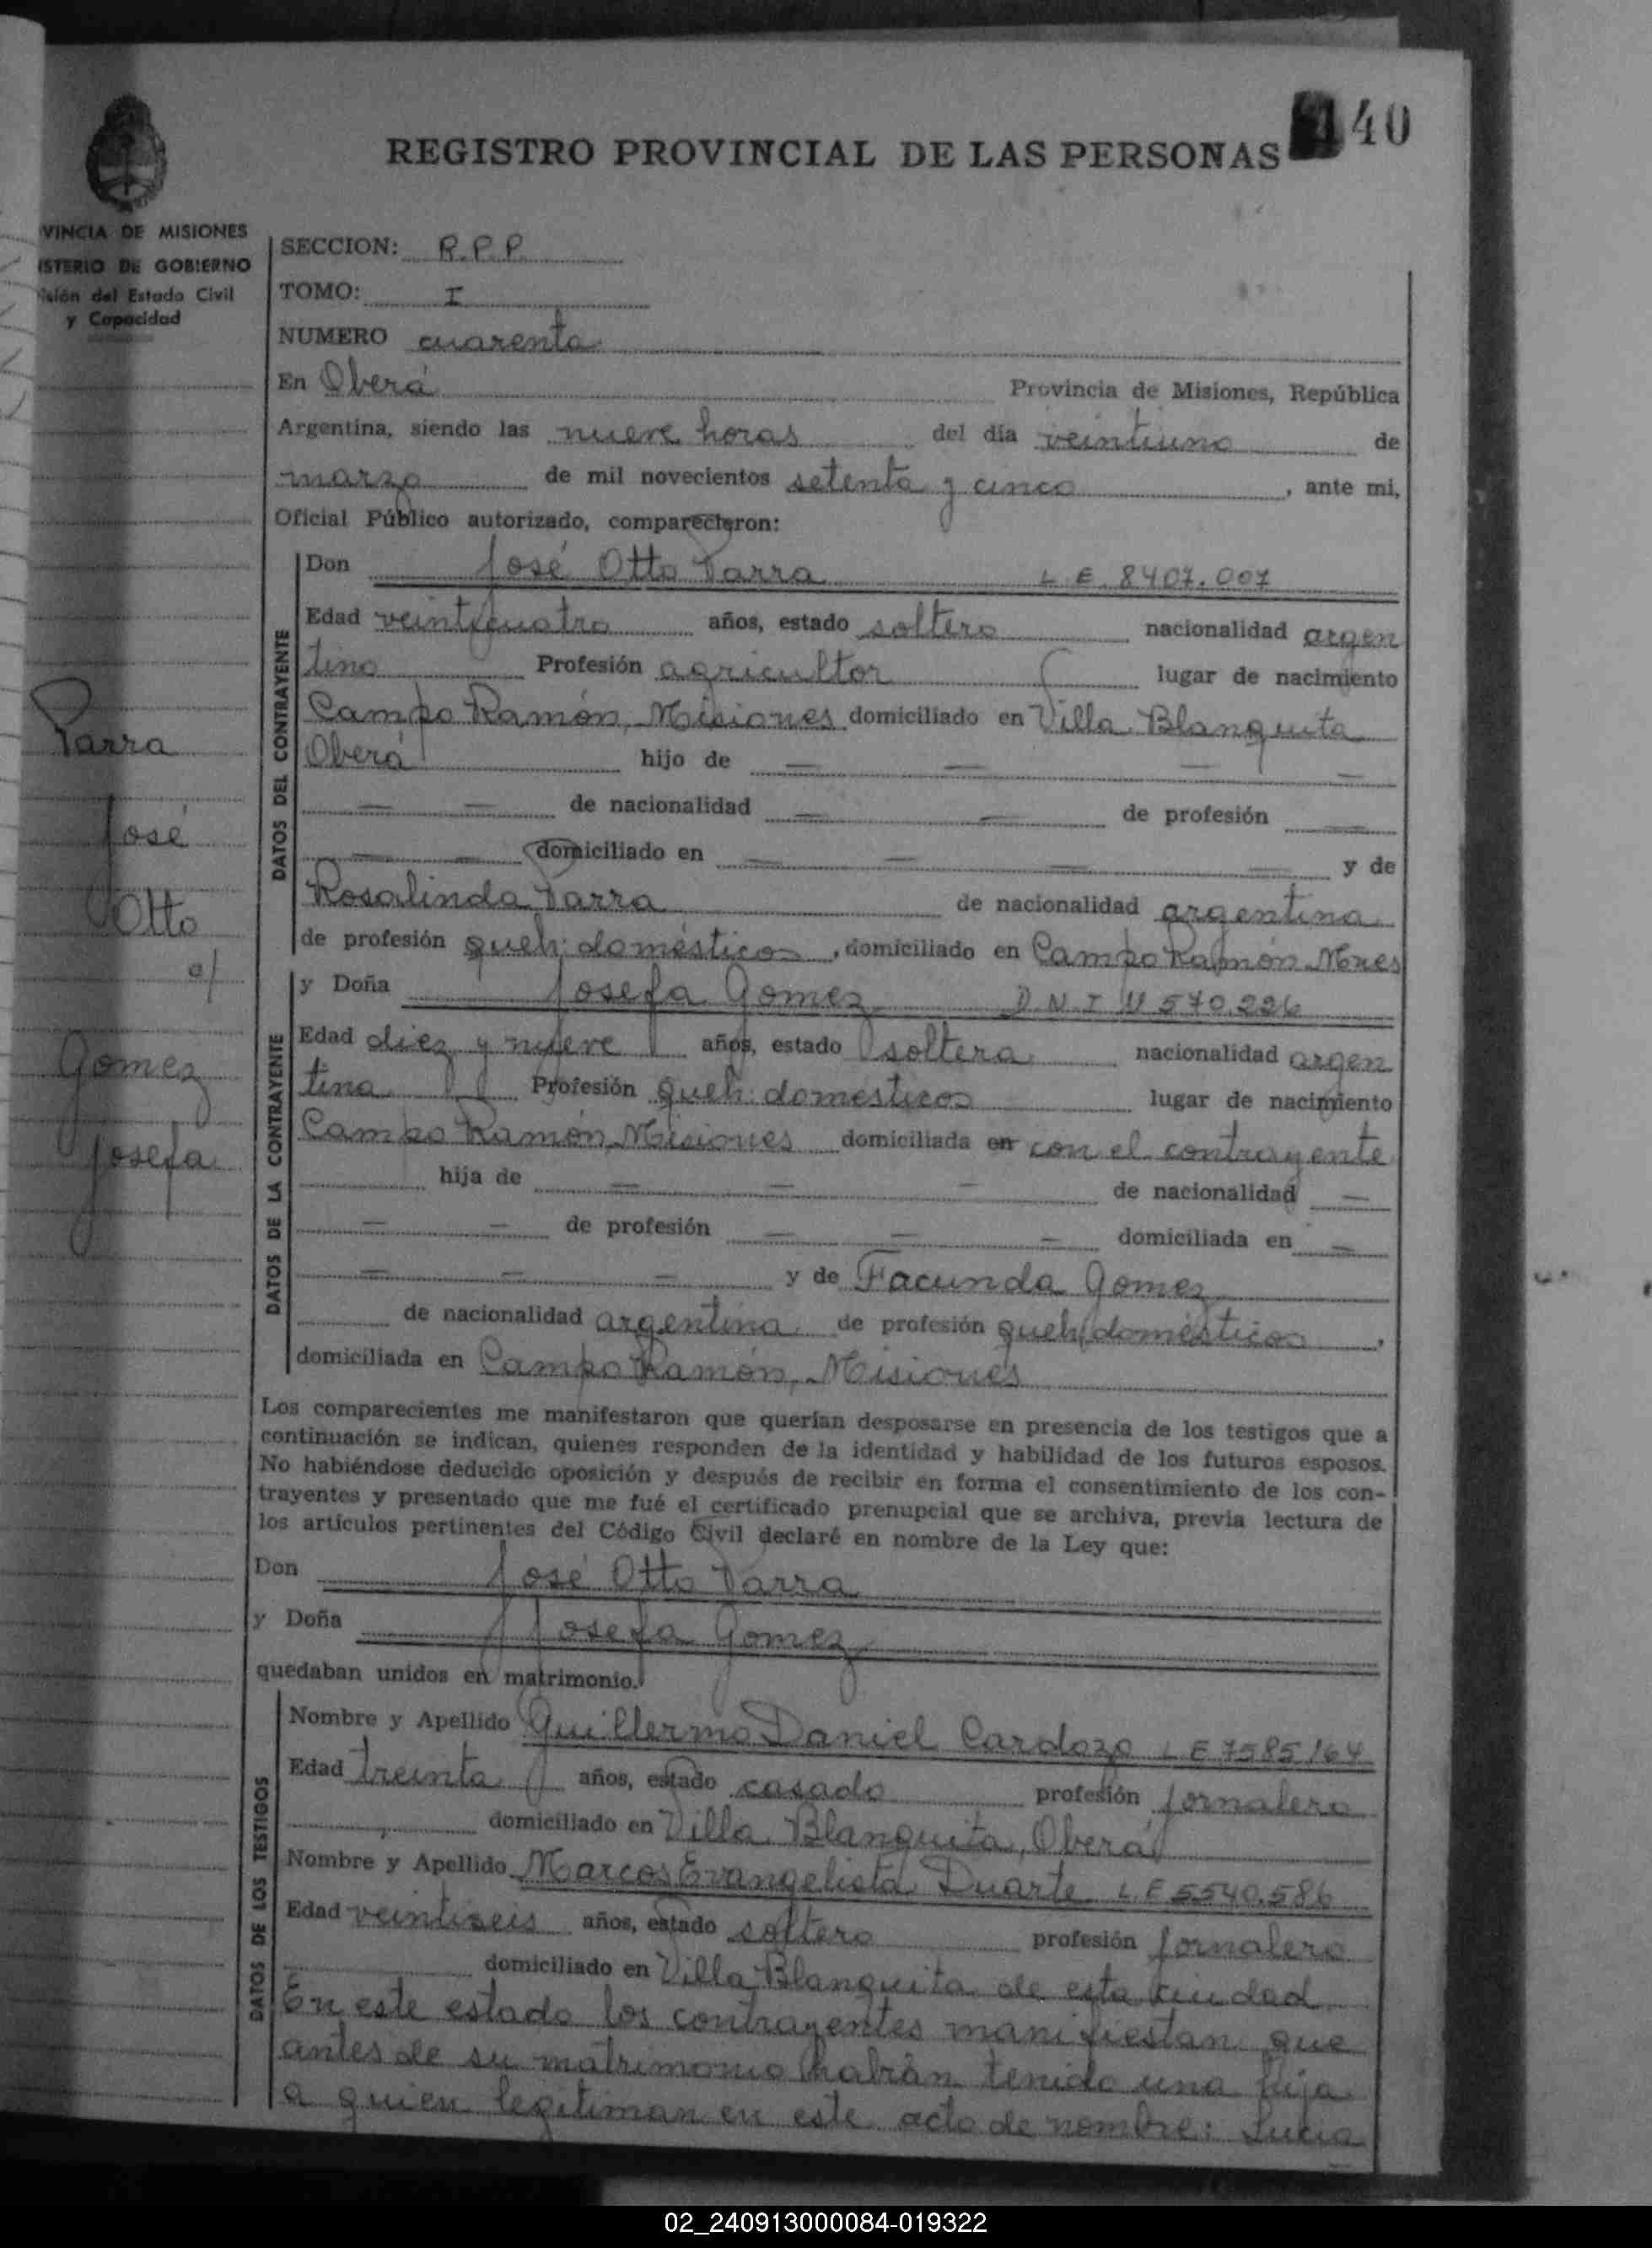 40
REGISTRO PROVINCIAL DE LAS PERSONAS
VINCIA DE MISIONES
ISTERIO DE GOBIERNO
isión del Estado Civil
y Capacidad
SECCION: R.P.P.
TOMO: I
NUMERO cuarenta
En Oberá Provincia de Misiones, República
Argentina, siendo las nueve horas del día veintiuno de
marzo de mil novecientos setenta y cinco, ante mi,
Oficial Público autorizado, comparecieron:
DATOS DEL CONTRAYENTE
Don José Otto Parra L.E. 8407.007
Edad veinticuatro años, estado soltero nacionalidad argen
tino Profesión agricultor lugar de nacimiento
Campo Ramón, Misiones domiciliado en Villa Blanquita
Oberá hijo de — — — —
— — de nacionalidad — — de profesión —
— — domiciliado en — — — — y de
Rosalinda Parra de nacionalidad argentina
de profesión queh. domésticos, domiciliado en Campo Ramón Mnes
Parra
José
Otto
c/
Gomez
Josefa
DATOS DE LA CONTRAYENTE
y Doña Josefa Gomez D.N.I 11 570.226
Edad diez y nueve años, estado soltera nacionalidad argen
tina Profesión queh. domésticos lugar de nacimiento
Campo Ramón, Misiones domiciliada en con el contrayente
hija de — — — de nacionalidad —
— — de profesión — — — domiciliada en —
— — — y de Facunda Gomez
de nacionalidad argentina de profesión queh. domésticos,
domiciliada en Campo Ramón, Misiones
Los comparecientes me manifestaron que querían desposarse en presencia de los testigos que a
continuación se indican, quienes responden de la identidad y habilidad de los futuros esposos.
No habiéndose deducido oposición y después de recibir en forma el consentimiento de los con-
trayentes y presentado que me fué el certificado prenupcial que se archiva, previa lectura de
los artículos pertinentes del Código Civil declaré en nombre de la Ley que:
Don José Otto Parra
y Doña Josefa Gomez
quedaban unidos en matrimonio.
DATOS DE LOS TESTIGOS
Nombre y Apellido Guillermo Daniel Cardozo L E 7585164
Edad treinta años, estado casado profesión jornalero
domiciliado en Villa Blanquita, Oberá
Nombre y Apellido Marcos Evangelista Duarte L.E 5540.586
Edad veintiseis años, estado soltero profesión jornalero
domiciliado en Villa Blanquita de esta ciudad
En este estado los contrayentes manifiestan que
antes de su matrimonio habían tenido una hija
a quien legitiman en este acto de nombre: Lucia
02_240913000084-019322